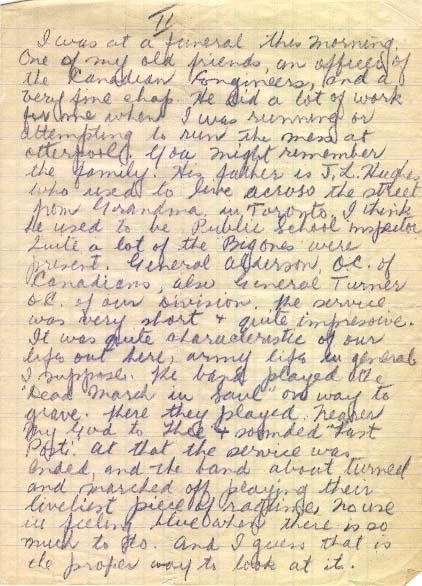 II
I was at a funeral this morning.
One of my old friends, an officer of
the Canadian Engineers, and a
very fine chap. He did a lot of work
for me when I was running or
attempting to run the mess at
Otterpool. You might remember
the family. His father is J. L. Hughes
who used to live across the street
from Grandma, in Toronto. I think
he used to be Public School Inspector
Quite a lot of the Big ones were
present. General Alderson, O.C. of
Canadians, also General Turner
O.C. of our Division. The service
was very short & quite impressive.
It was quite characteristic of our
life out here, army life in general
I suppose. The band played the
"Dead March in Saul" on way to
grave. There they played Nearer
My God to Thee & sounded "Last
Post". At that the service was
ended, and the band about turned
and marched off playing their
liveliest piece of ragtime. No use
in feeling blue when there is so
much to do. And I guess that is
the proper way to look at it.